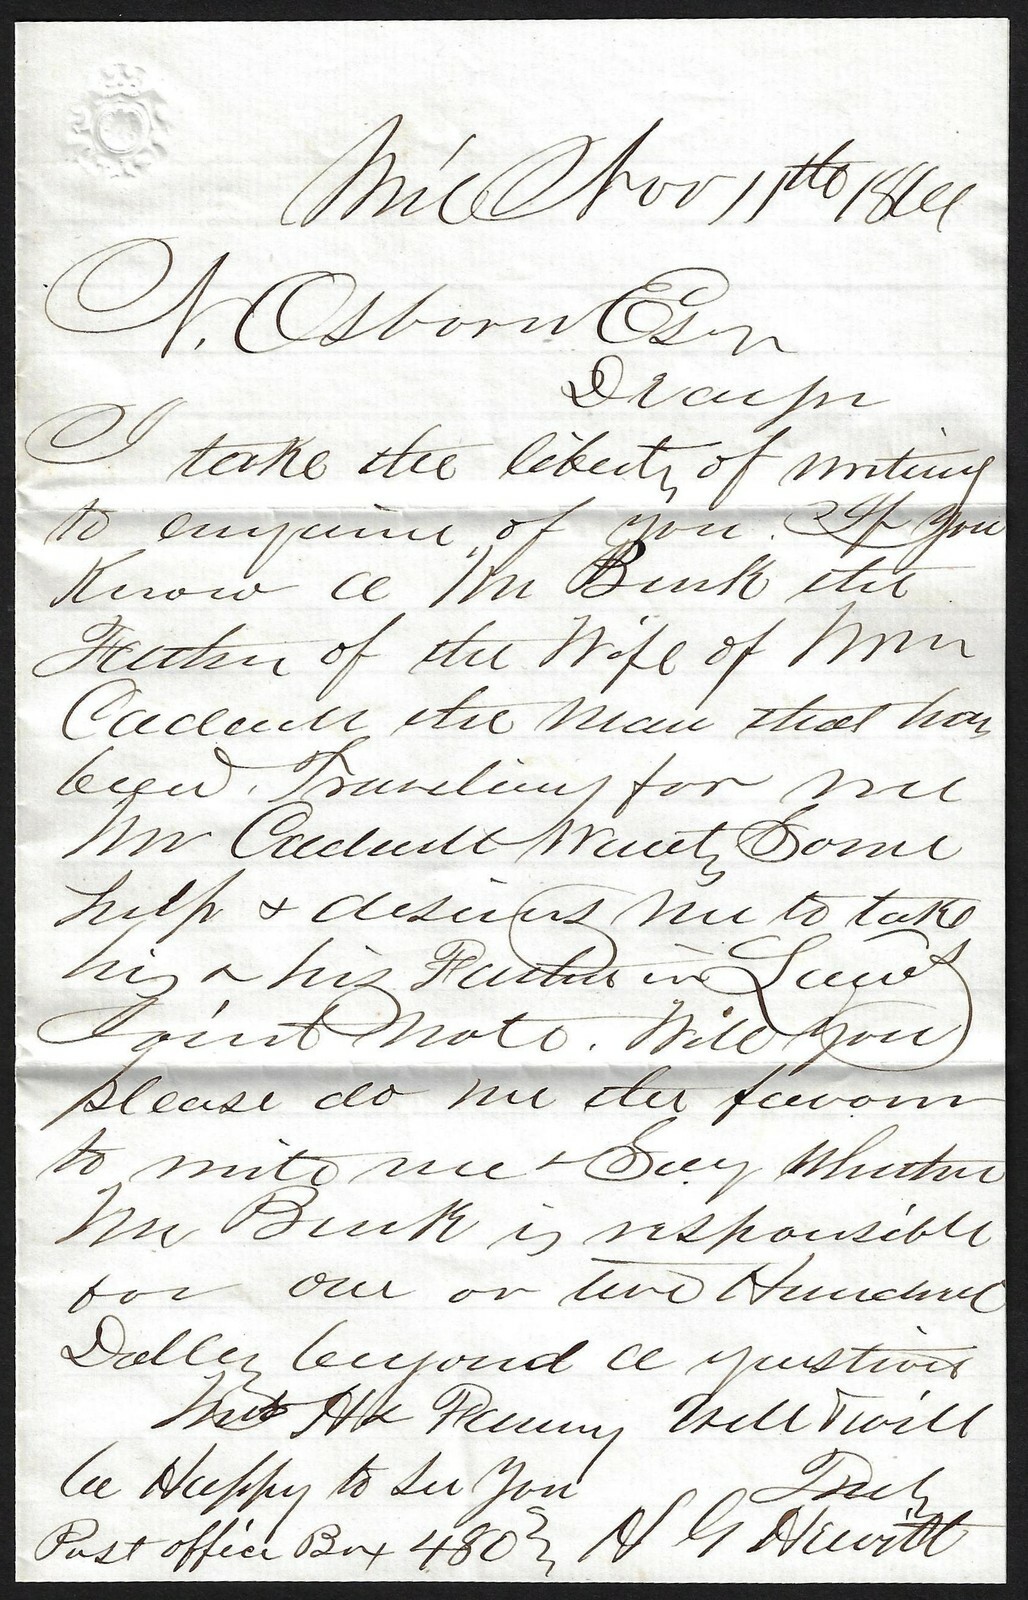 Mil Nov 11th 1864
N. Osborn Esqr
Dear Sir
I take the liberty of writing
to enquire of you. If you
Know a Mr Burk the
Father of the Wife of Wm
Cadwell the Man that has
been Traveling for me
Mr Cadwell Wants Some
help & desires me to take
his & his Father in Laws
Joint Note. Will you
please do me the favour
to write me & Say Whether
Mr Burk is responsible
for one or two Hundred
Dollers beyond a question
Mrs H & Fanny Well & will
be Happy to see you
Truly
Post office Box 480 H G Hewitt